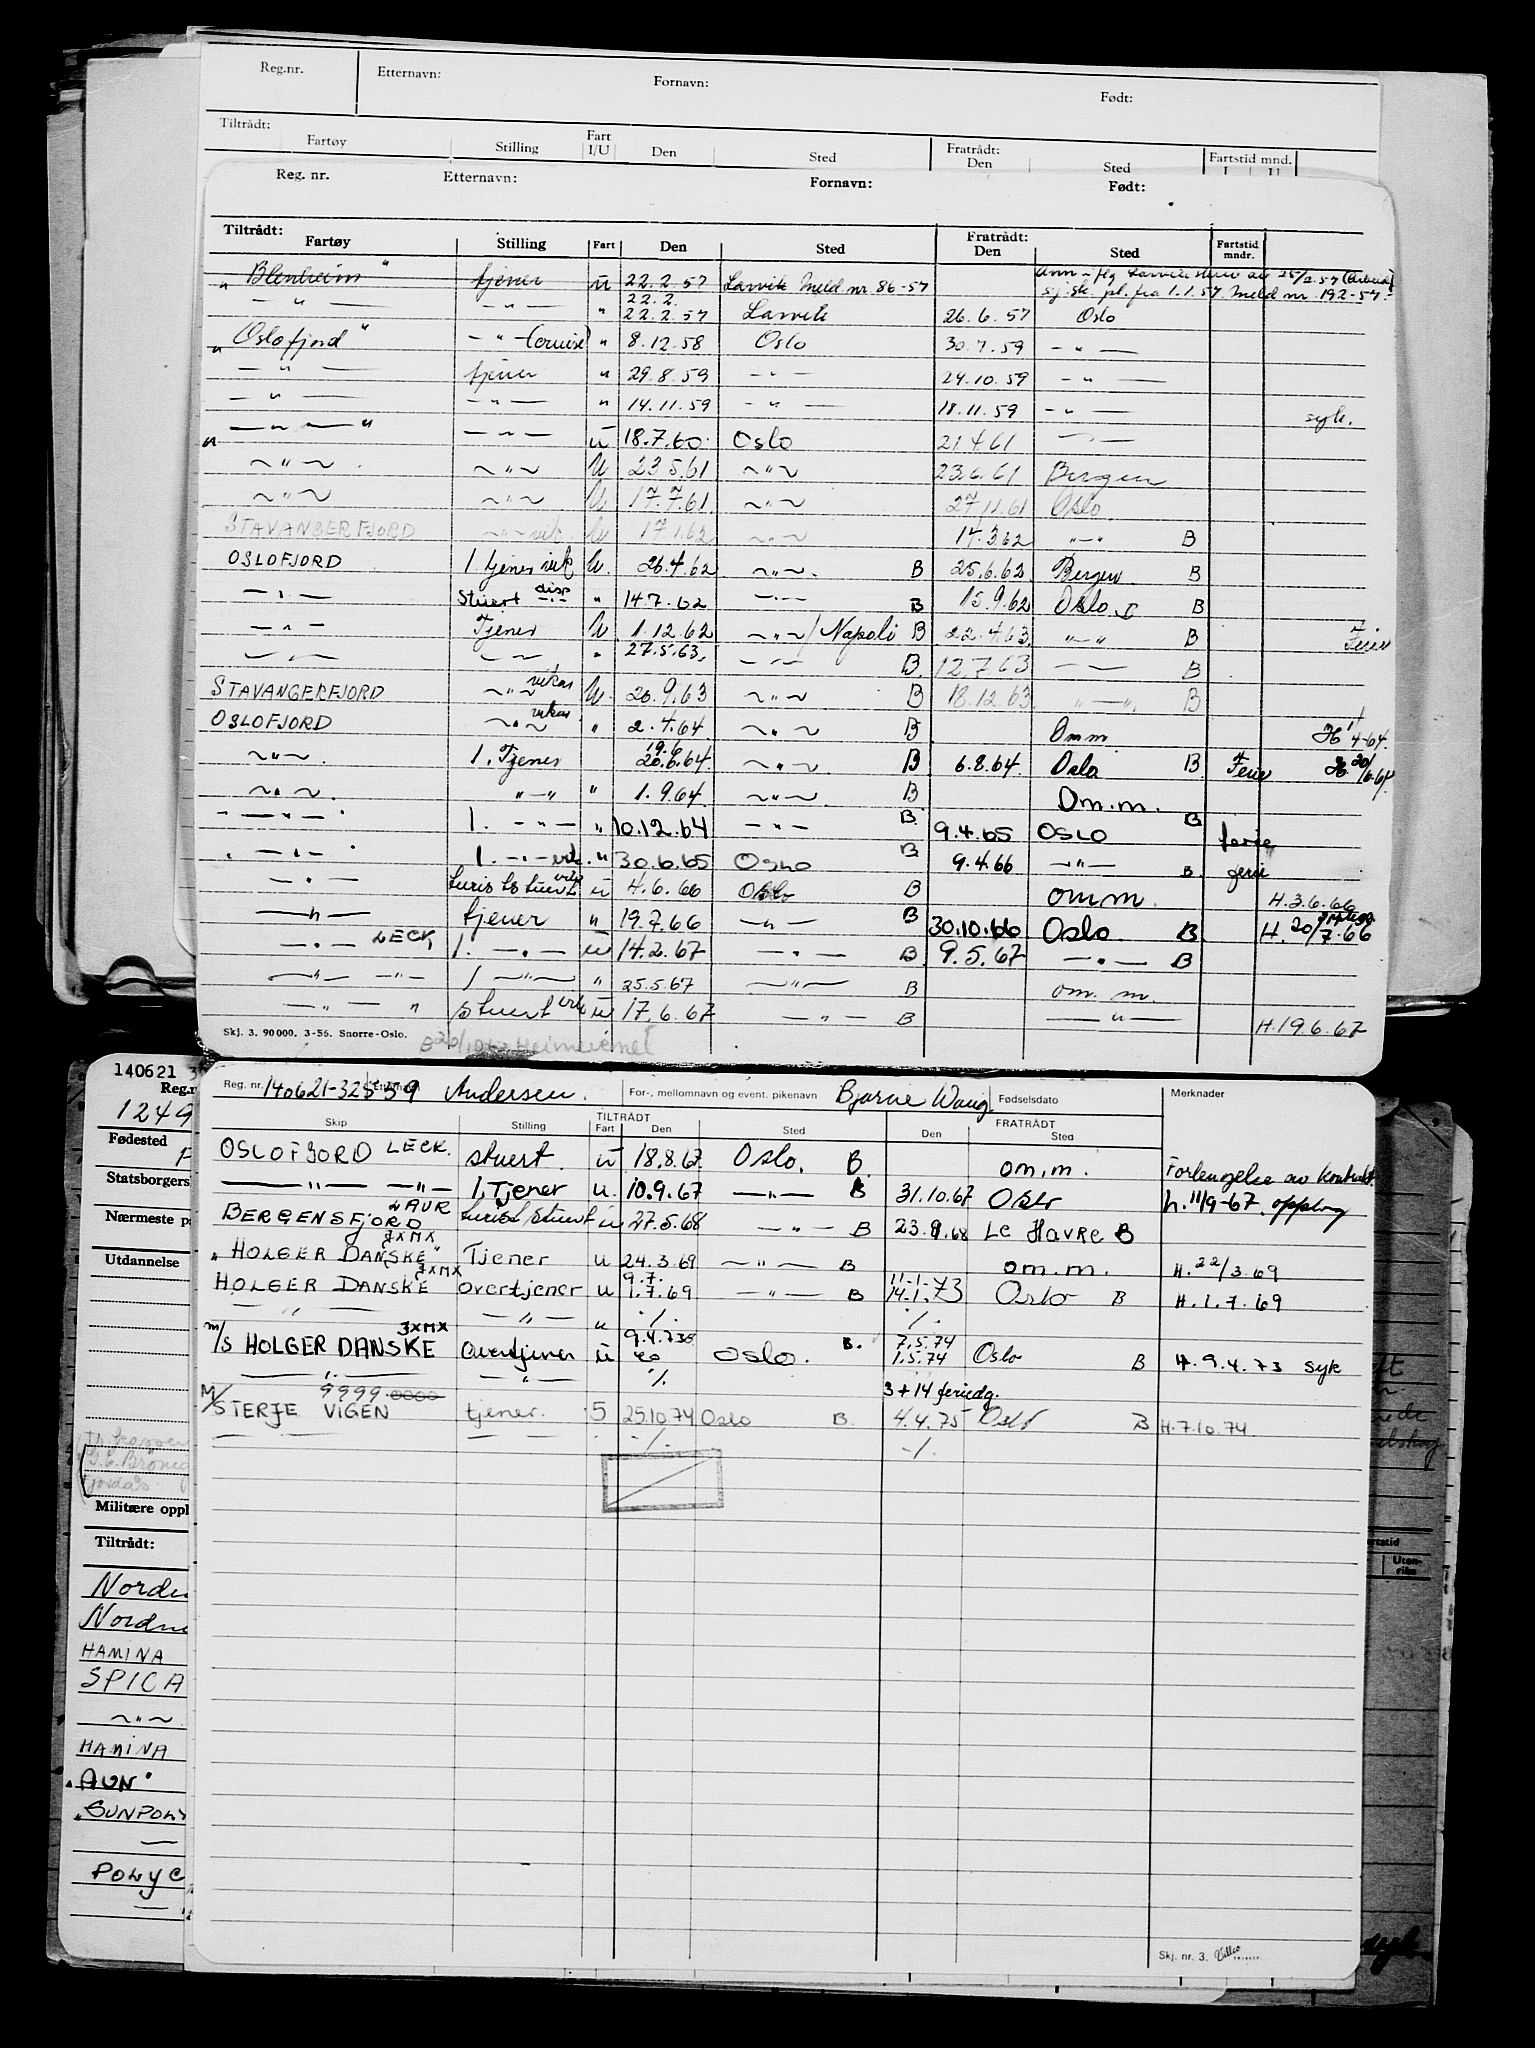 Reg.nr. Etternavn: Fornavn: Født:
Tiltrådt: Fratrådt:
Fartøy Stilling Fart I/U Den Sted Den Sted Fartstid mnd.
Reg. nr. Etternavn: Fornavn: Født:
Tiltrådt: Fratrådt:
Fartøy Stilling Fart Den Sted Den Sted Fartstid mndr.
"Blenheim" tjener u 22.2.57 Larvik Meld nr. 86-57
— " — — " — " 22.2. 22.2.57 Larvik 26.6.57 Oslo
sj. sk. pl. fra 1.1.57. Meld nr 192-57.
"Oslofjord" — " — (cruise) " 8.12.58 Oslo 30.7.59 — " —
— " — tjener " 29.8.59 — " — 24.10.59 — " —
— " — — " — " 14.11.59 — " — 18.11.59 — " — syk.
" — " — " — " — u 18.7.60. Oslo 21.4.61 — " —
~ " ~ ~ " ~ U 23.5.61 ~ " ~ 23.6.61 Bergen
~ " ~ ~ " ~ U 17.7.61. ~ " ~ 27.11.61 Oslo
STAVANGERFJORD ~ " ~ vik. U 17.1.62 ~ " ~ 14.3.62 " — " B
OSLOFJORD 1. tjener vik U. 26.4.62 ~ " ~. B 25.6.62 Bergen B
— " — Stuert disp " 14.7.62 — " — B 15.9.62 Oslo B
— " — Tjener U 1.12.62 ~ " ~ / Napoli B 22.4.63. " — " B Ferie
— " — ~ " ~ " 27.5.63. — " — B. 12.7.63 — " — B
STAVANGERFJORD ~ " ~ vikar U. 20.9.63 ~ " ~ B 18.12.63 " — ". B
OSLOFJORD ~ " ~ vikar " 2.4.64. ~ " ~ B Omm H 1/4-64.
~ " ~. 1. Tjener 19.6. 20.6.64. ~ " ~. B 6.8.64. Oslo B Ferie H. 20/6-64.
~ " ~. " — " " 1.9.64. ~ " ~. B Om.m.
" — " — " 1. — " — " 10.12.64 — " — B. 9.4.65 OSLO B ferie
" — " — " 1. — " — vik. " 30.6.65 OSLO B 9.4.66 — " — B. ferie
— " — turist stuert vik u 4.6.66 Oslo B omm. H.3.6.66
— " — tjener " 19.7.66 — " — B 30.10.66 Oslo B. H. 20/7.66
— " — LECK 1. — " — u 14.2.67 — " — B. 9.5.67 — " — B
— " — — " — 1 — " — " 25.5.67 — " — B om. m.
— " — " stuert vik u 17.6.67 — " — B — " — H.19.6.67
Skj. 3. 90 000. 3-56. Snorre-Oslo.
140621
Reg.n
1249
Fødested
Statsborgers
Nærmeste p
Utdannelse
Militære oppl
Tiltrådt:
Norden
Nordn
HAMINA
SPICA
~ " ~.
HAMINA
"AUN"
"SUNPOLY
—
POLYC
Reg. nr. 140621-32559 Etternavn Andersen. For-, mellomnavn og event. pikenavn Bjarne Wang. Fødselsdato Merknader
TILTRÅDT FRATRÅDT
Skip Stilling Fart Den Sted Den Sted
OSLOFJORD LECK. stuert. u 18.8.67. Oslo. B. om.m. Forlengelse av kontrakt
— " — — " — 1. Tjener u. 10.9.67 — " — B 31.10.67 Oslo h. 11/9-67. opplag
BERGENSFJORD LAUR turist stuert u 27.5.68 — " — B 23.9.68 Le Havre B
"HOLGER DANSKE" JXMX Tjener u 24.3.69 — " — B om.m. H. 22/3.69
HOLGER DANSKE JXMX overtjener u 9.7. 1.7.69 — " — B 11-1-73 14.1.73 Oslo B H.1.7.69
— " — — " — " ./. ./.
m/s HOLGER DANSKE JXMX overtjener u 9.4.73 Oslo. B. 7.5.74 1.5.74 Oslo B H.9.4.73 syk
— " — — " — ./. 3+14 feriedg.
M/S TERJE VIGEN 9999 0000 tjener. 5 25.10.74 Oslo B. 4.4.75 Oslo B H.7.10.74
— — — — ./. ./.
Skj. nr. 3.